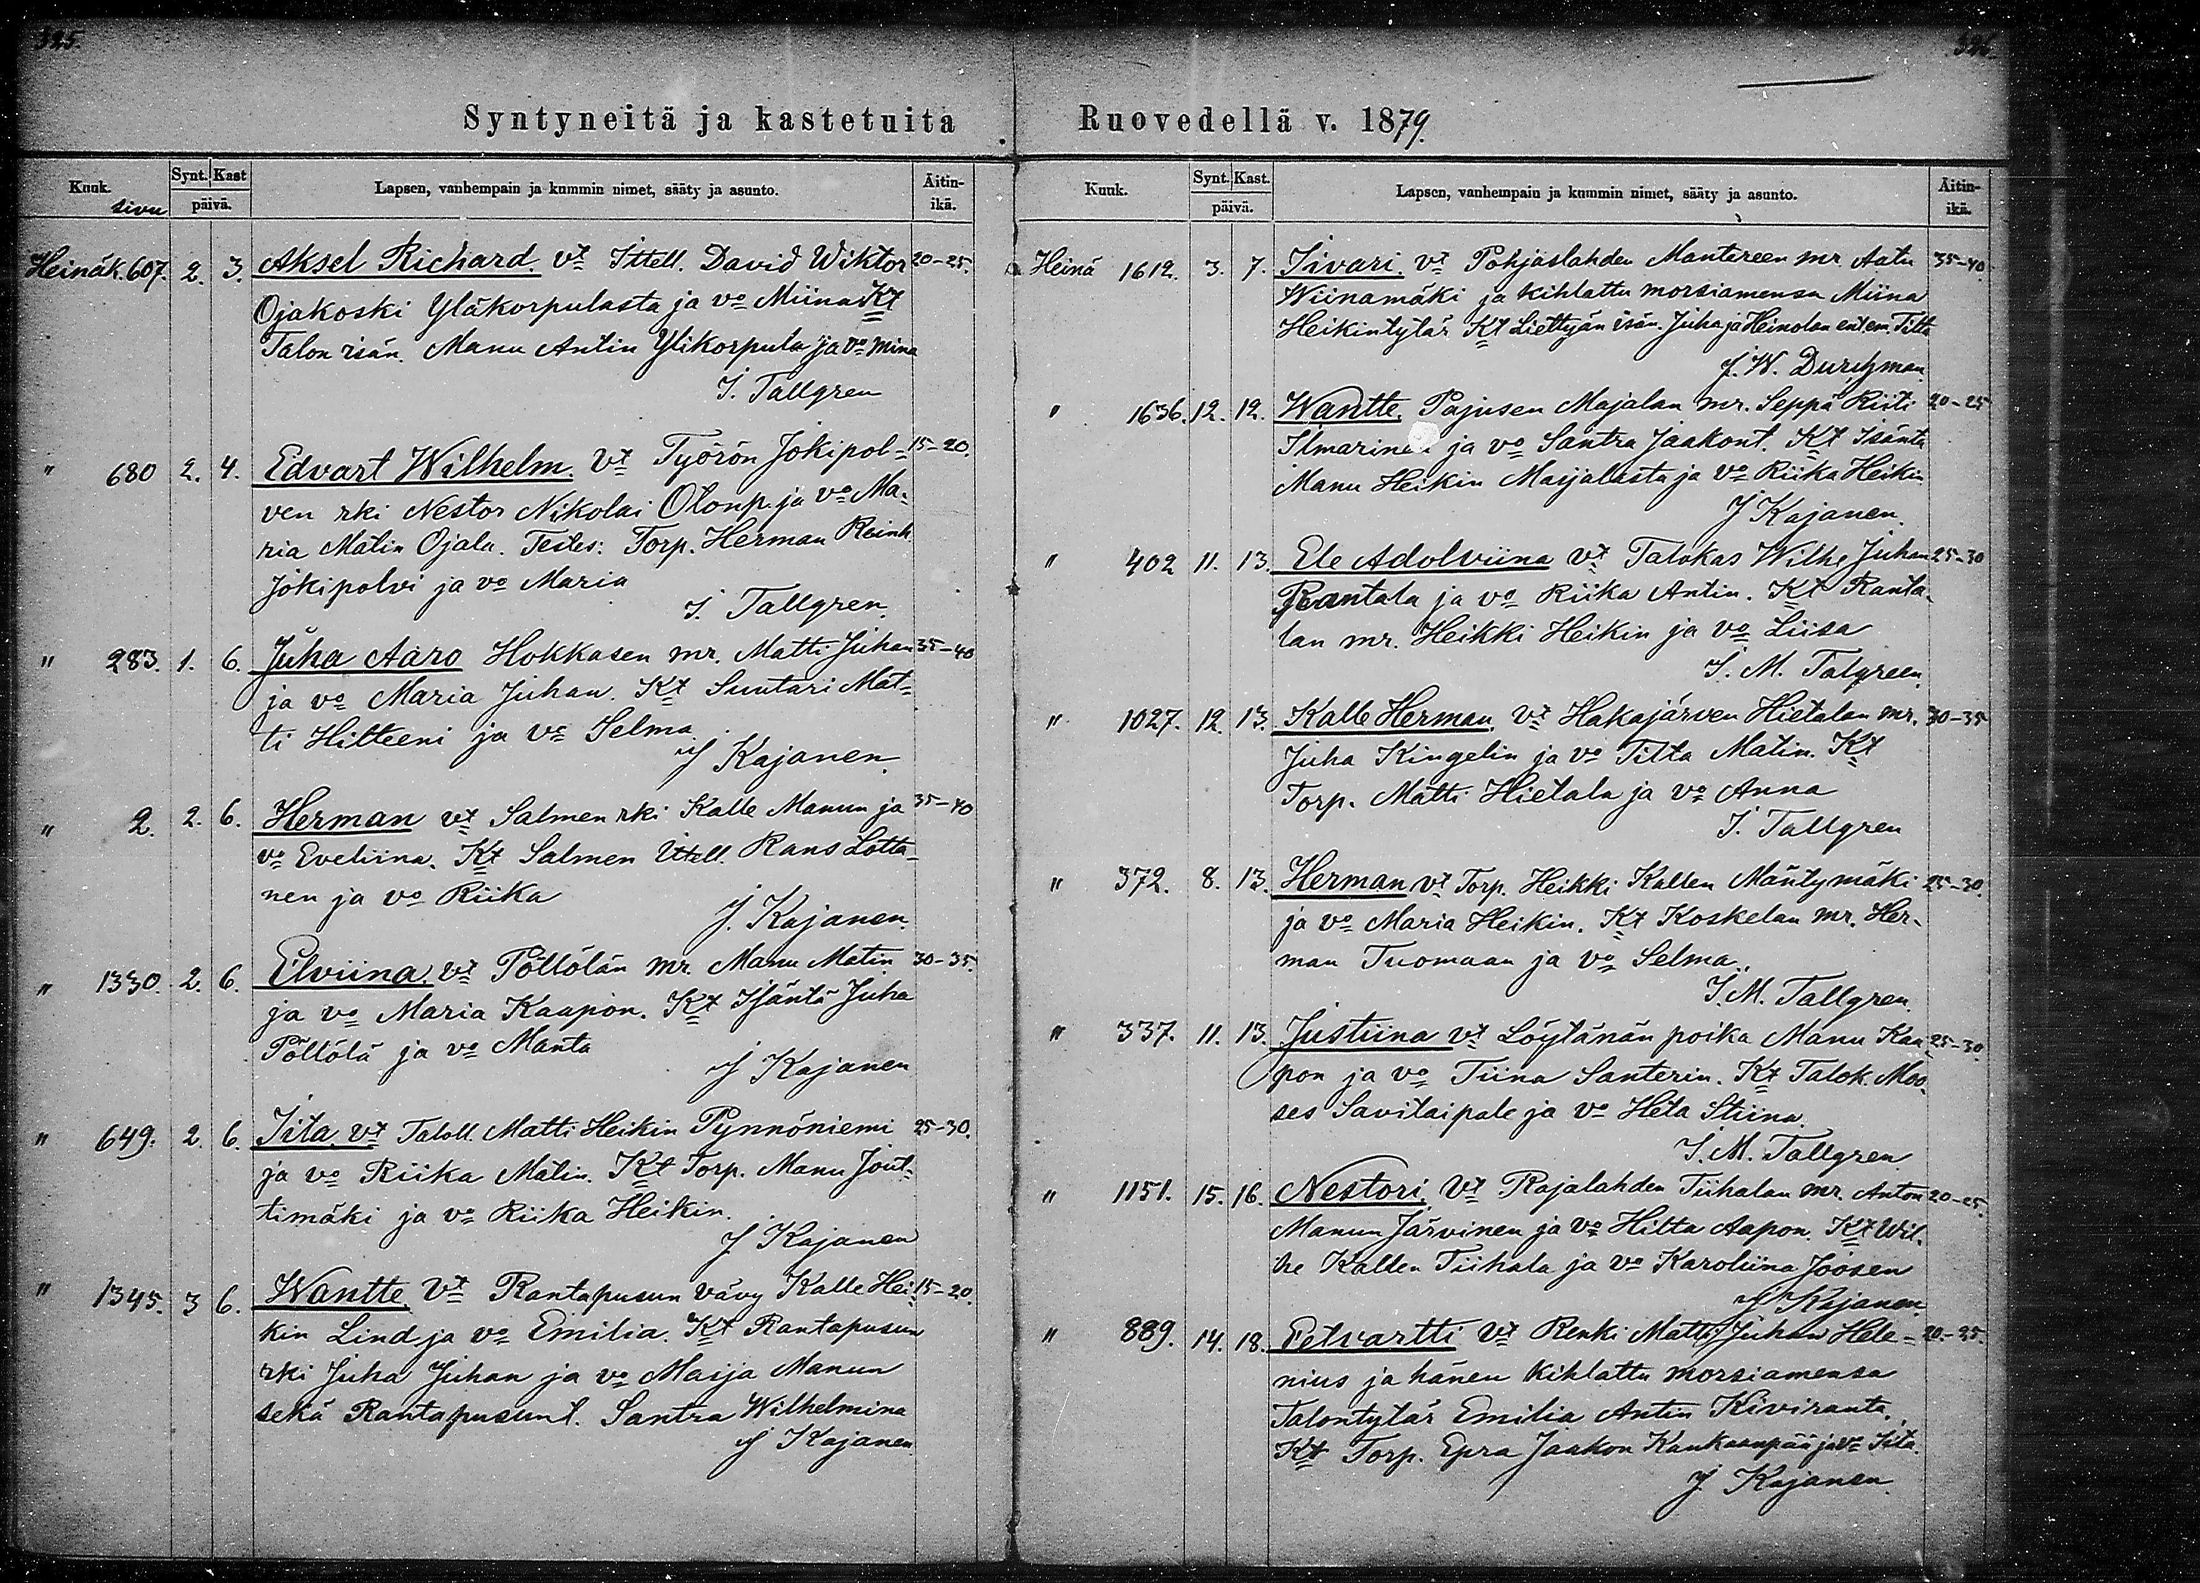 325.
Syntyneitä ja kastetuita
Kuuk. sivu Synt. Kast päivä. Lapsen, vanhempain ja kummin nimet, sääty ja asunto. Äitin-ikä.
Heinäk. 607. 2. 3. Aksel Richard. vt Ittell. David Wiktor 20-25.
Ojakoski Yläkorpulasta ja vo Miina Kt
Talon isän. Manu Antin Ylikorpula ja vo Mina
I. Tallgren
" 680 2. 4. Edvart Wilhelm. vt Työrön Jokipol- 15-20.
ven rki Nestor Nikolai Olonp. ja vo Ma-
ria Matin Ojala. Testes: Torp. Herman Reinh
Jokipolvi ja vo Maria
I. Tallgren.
" 283. 1. 6. Juha Aaro Hokkasen mr. Matti Juhan 35-40
ja vo Maria Juhan. Kt Suutari Mat-
ti Hilteeni ja vo Selma
J Kajanen.
" 2. 2. 6. Herman vt Salmen rki Kalle Manun ja 35-40
vo Eveliina. Kt Salmen Ittell. Rans Lotta-
nen ja vo Riika
J. Kajanen.
" 1330. 2. 6. Elviina. vt Pöllölän mr. Manu Matin 30-35.
ja vo Maria Kaapon. Kt Isäntä Juha
Pöllölä ja vo Manta
J Kajanen
" 649. 2. 6. Iita. vt Taloll. Matti Heikin Pynnöniemi 25-30.
ja vo Riika Matin. Kt Torp. Manu Jout-
timäki ja vo Riika Heikin.
J Kajanen
" 1345. 3 6. Wantte. vt Rantapusun vävy Kalle Hei- 15-20.
kin Lind ja vo Emilia. Kt Rantapusun
rki Juha Juhan ja vo Maija Manun
sekä Rantapusun t. Santra Wilhelmina
J Kajanen
326.
Ruovedellä v. 1879.
Kuuk. Synt. Kast. päivä. Lapsen, vanhempain ja kummin nimet, sääty ja asunto. Äitin-ikä.
Heinä 1612. 3. 7. Iivari. vt Pohjaslahden Mantereen mr. Aatu 35-40
Wiinamäki ja kihlattu morsiamensa Miina
Heikintytär Kt Liettyän isän. Juha ja Heinolan ent em. Titta
J. W. Durchman.
" 1636. 12. 12. Wantte. Pajusen Majalan mr. Seppä Riiti 20-25
Ilmarinen ja vo Santra Jaakont. Kt Isäntä
Manu Heikin Marjalasta ja vo Riika Heikin
J Kajanen.
" 402 11. 13. Ele Adolviina vt Talokas Wilhe Juhan 25-30
Rantala ja vo Riika Antin. Kt Ranta-
lan mr. Heikki Heikin ja vo Liisa
I. M. Talgreen.
" 1027. 12. 13. Kalle Herman. vt Hakajärven Hietalan mr. 30-35
Juha Kingelin ja vo Titta Matin. Kt
Torp. Matti Hietala ja vo Anna
I. Tallgren
" 372. 8. 13. Herman vt Torp. Heikki Kallen Mäntymäki 25-30.
ja vo Maria Heikin. Kt Koskelan mr. Her-
man Tuomaan ja vo Selma.
I. M. Tallgren.
" 337. 11. 13. Justiina vt Löytänän poika Manu Kaa- 25-30.
pon ja vo Tiina Santerin. Kt Talok. Moo-
ses Savitaipale ja vo Heta Stiina.
I. M. Tallgren
" 1151. 15. 16. Nestori. vt Rajalahden Tiihalan mr. Anton 20-25.
Manun Järvinen ja vo Hilta Aapon. Kt Wil-
he Kallen Tiihala ja vo Karoliina Joosen
J Kajanen.
" 889. 14. 18. Eetvartti vt Renki Matti Juhan Hele- 20-25.
nius ja hänen kihlattu morsiamensa
Talontytär Emilia Antin Kiviranta.
Kt Torp. Epra Jaakon Kankaanpää ja vo Iita.
J. Kajanen.